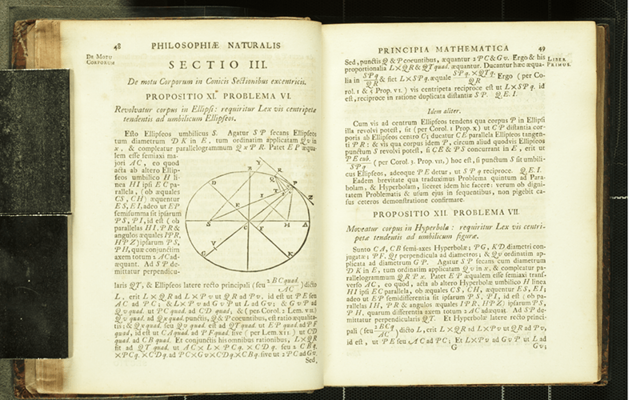 48 PHILOSOPHIÆ NATURALIS
De Motu
Corporum
SECTIO III.
De motu Corporum in Conicis Sectionibus excentricis.
PROPOSITIO XI. PROBLEMA VI.
Revolvatur corpus in Ellipsi: requiritur Lex vis centripetæ
tendentis ad umbilicum Ellipseos.
Esto Ellipseos umbilicus S. Agatur SP secans Ellipseos
tum diametrum DK in E, tum ordinatim applicatam Qv in
x, & compleatur parallelogrammum QxPR. Patet EP æqua-
lem esse semiaxi ma-
jori AC, eo quod
acta ab altero Ellip-
seos umbilico H li-
nea HI ipsi EC pa-
rallela, (ob æquales
CS, CH) æquentur
ES, EI, adeo ut EP
semisumma sit ipsarum
PS, PI, id est (ob
parallelas HI, PR &
angulos æquales IPR,
HPZ) ipsarum PS,
PH, quæ conjunctim
axem totum 2AC ad-
æquant. Ad SP de-
mittatur perpendicu-
laris QT, & Ellipseos latere recto principali (seu 2BC quad. / AC) dicto
L, erit L×QR ad L×Pv ut QR ad Pv, id est ut PE seu
AC ad PC; & L×Pv ad GvP ut L ad Gv; & GvP ad
Qv quad. ut PC quad. ad CD quad; & (per Corol. 2 Lem. VII.)
Qv quad. ad Qx quad. punctis Q & P coeuntibus, est ratio æqualita-
tis; & Qx quad. seu Qv quad. est ad QT quad. ut EP quad. ad PF
quad, id est ut CA quad. ad PF quad. sive (per Lem. XII.) ut CD
quad. ad CB quad. Et conjunctis his omnibus rationibus, L×QR
fit ad QT quad. ut AC×L×PCq.×CDq. seu 2CBq.
×PCq.×CDq. ad PC×Gv×CDq.×CBq. sive ut 2PC ad Gv.
Sed,
PRINCIPIA MATHEMATICA 49
Liber
Primus
Sed, punctis Q & P coeuntibus, æquantur 2PC & Gv. Ergo & his
proportionalia L×QR & QT quad. æquantur. Ducantur hæc æqua-
lia in SPq. / QR & fiet L×SPq. æquale SPq.×QTq. / QR Ergo (per Co-
rol. 1 & 5 Prop. VI.) vis centripeta reciproce est ut L×SPq. id
est, reciproce in ratione duplicata distantiæ SP. Q. E. I.
Idem aliter.
Cum vis ad centrum Ellipseos tendens qua corpus P in Ellipsi
illa revolvi potest, sit (per Corol. 1 Prop. X) ut CP distantia cor-
poris ab Ellipseos centro C; ducatur CE parallela Ellipseos tangen-
ti PR: & vis qua corpus idem P, circum aliud quodvis Ellipseos
punctum S revolvi potest, si CE & PS concurrant in E, erit ut
PE cub. / SPq. (per Corol. 3 Prop. VII.) hoc est, si punctum S sit umbili-
cus Ellipseos, adeoque PE detur, ut SPq reciproce. Q. E. I.
Eadem brevitate qua traduximus Problema quintum ad Para-
bolam, & Hyperbolam, liceret idem hic facere: verum ob digni-
tatem Problematis & usum ejus in sequentibus, non pigebit ca-
sus ceteros demonstratione confirmare.
PROPOSITIO XII. PROBLEMA VII.
Moveatur corpus in Hyperbola: requiritur Lex vis centri-
petæ tendentis ad umbilicum figuræ.
Sunto CA, CB semi-axes Hyperbolæ; PG, KD diametri con-
jugatæ; PF, Qt perpendicula ad diametros; & Qv ordinatim ap-
plicata ad diametrum GP. Agatur SP secans cum diametrum
DK in E, tum ordinatim applicatam Qv in x, & compleatur pa-
rallelogrammum QRPx. Patet EP æqualem esse semiaxi trans-
verso AC, eo quod, acta ab altero Hyperbolæ umbilico H linea
HI ipsi EC parallela, ob æquales CS, CH, æquentur ES, EI;
adeo ut EP semidifferentia sit ipsarum PS, PI, id est (ob pa-
rallelas HI, PR & angulos æquales IPR, HPZ) ipsarum PS,
PH, quarum differentia axem totum 2AC adæquat. Ad SP de-
mittatur perpendicularis QT. Et Hyperbolæ latere recto princi-
pali (seu 2BCq / AC) dicto L, erit L×QR ad L×Pv ut QR ad Pv,
id est, ut PE seu AC ad PC; Et L×Pv ad GvP ut L ad
G Gv;